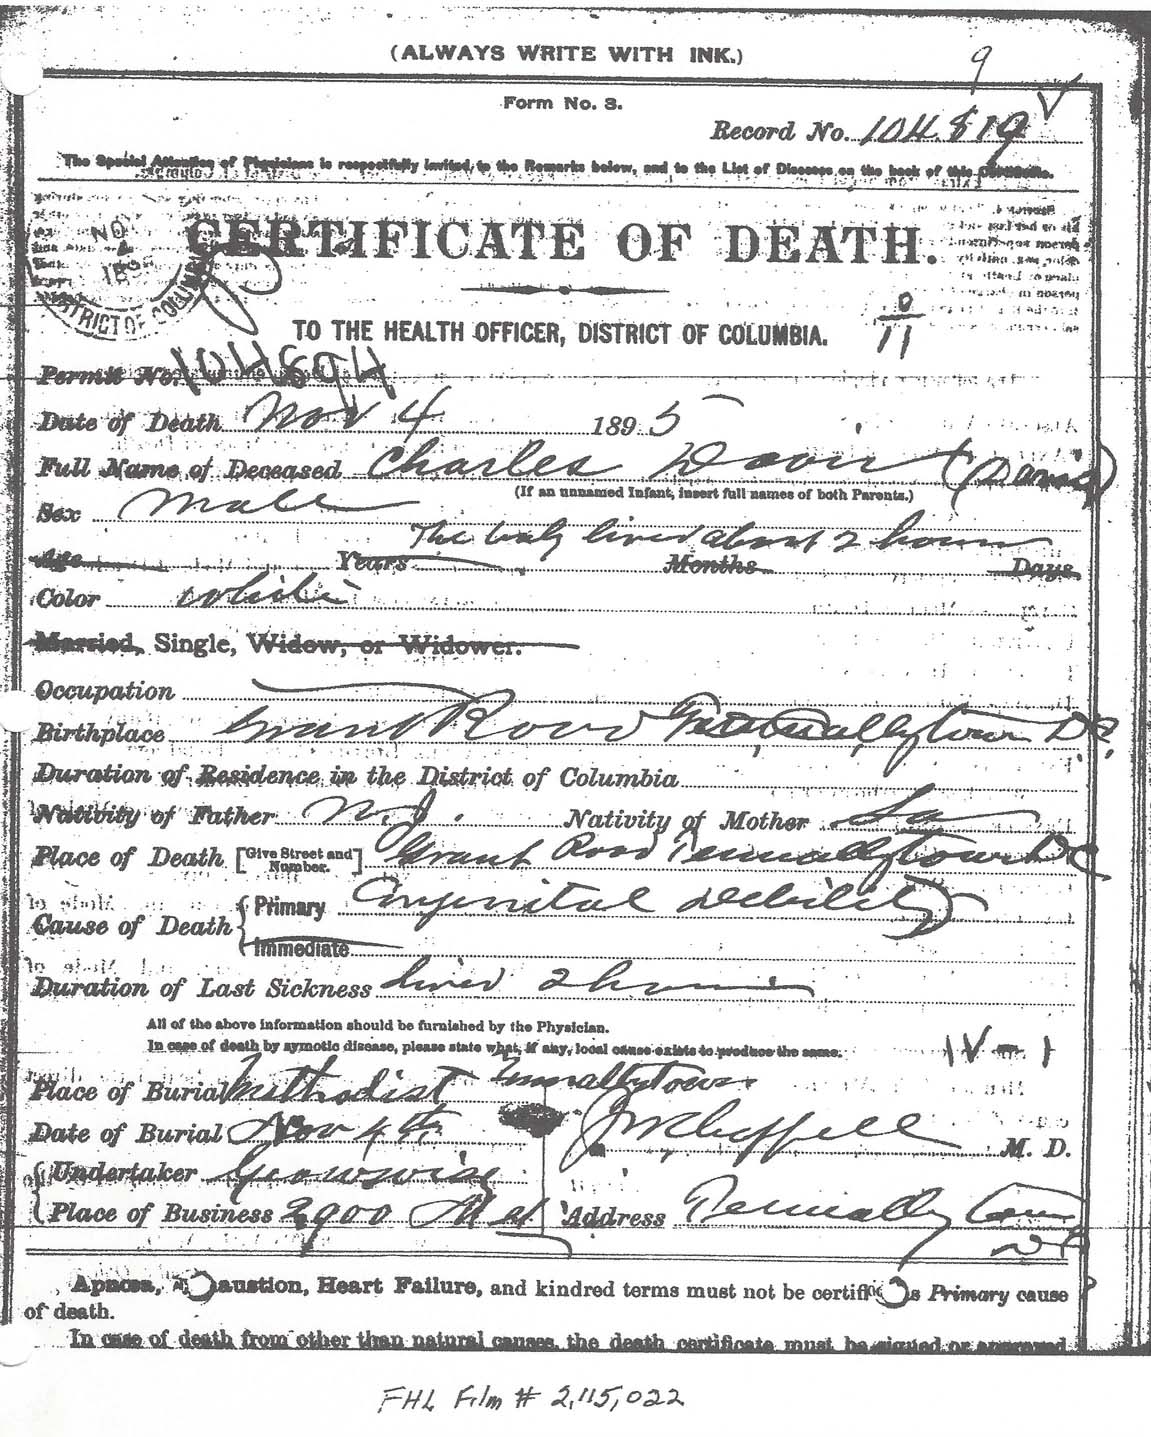 (ALWAYS WRITE WITH INK.)
9
Form No. 3.
Record No. 104819
The Special Attention of Physicians is respectfully invited to the Remarks below, and to the List of Diseases on the back of this Certificate.
NO
4
189
DISTRICT OF COLUM
CERTIFICATE OF DEATH.
TO THE HEALTH OFFICER, DISTRICT OF COLUMBIA.
0
11
Permit No. 104894
Date of Death Nov 4 1895
Full Name of Deceased Charles Davis (Davis)
(If an unnamed Infant, insert full names of both Parents.)
Sex Male
The baby lived about 2 hours
Age Years Months Days
Color White
Married, Single, Widow, or Widower.
Occupation
Birthplace Grant Road Tennallytown DC
Duration of Residence in the District of Columbia
Nativity of Father N.J. Nativity of Mother
Place of Death [Give Street and Number.] Grant Road Tennallytown DC
Cause of Death { Primary Congenital Debility
Immediate
Duration of Last Sickness lived 2 hours
All of the above information should be furnished by the Physician.
In case of death by zymotic disease, please state what, if any, local cause exists to produce the same.
IV-1
Place of Burial Methodist Tennallytown
Date of Burial Nov 4th
M. D.
Undertaker
Place of Business 2900 M st Address Tennally town
DC
Apnoea, Exhaustion, Heart Failure, and kindred terms must not be certified as Primary cause
of death.
In case of death from other than natural causes, the death certificate must be signed or approved
FHL Film # 2,115,022